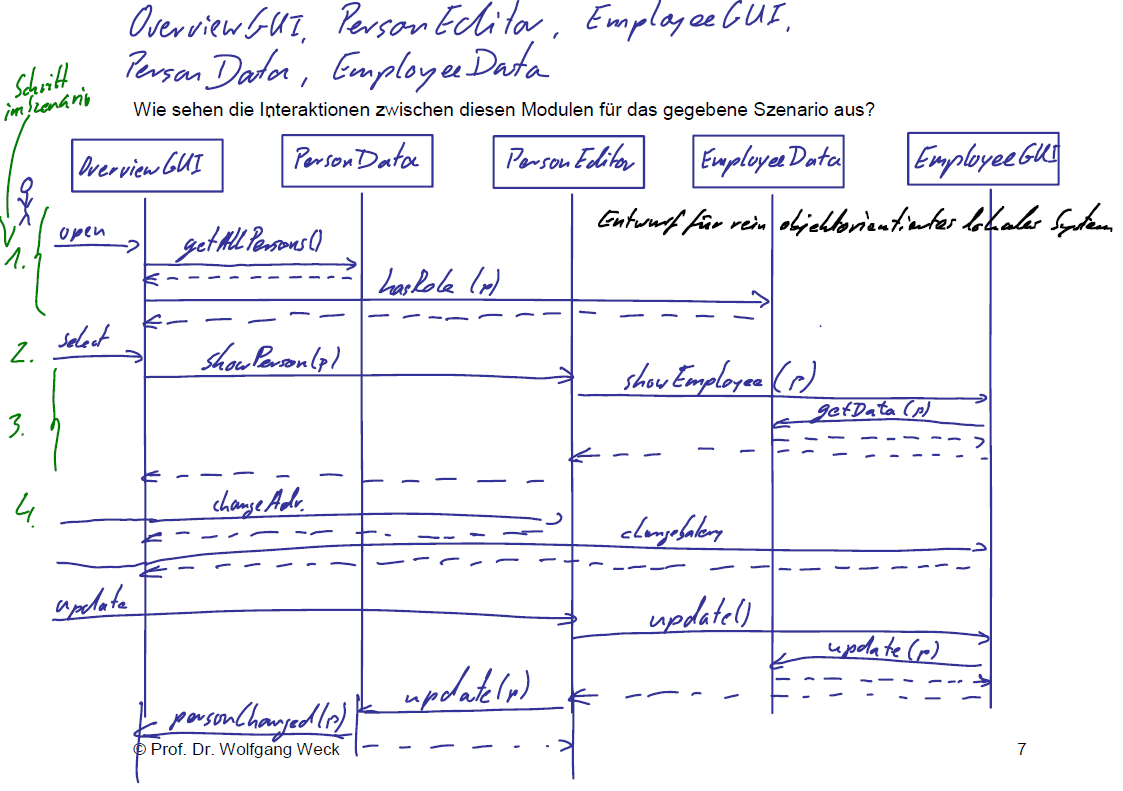 OverviewGUI, PersonEditor, EmployeeGUI,
PersonData, EmployeeData
Schritt
im Szenario
Wie sehen die Interaktionen zwischen diesen Modulen für das gegebene Szenario aus?
OverviewGUI
PersonData
PersonEditor
EmployeeData
EmployeeGUI
Entwurf für rein objektorientiertes lokales System
open
getAllPersons()
1.
hasRole (p)
select
2.
showPerson(p)
showEmployee (p)
getData(p)
3.
4.
changeAdr.
changeSalary
update
update()
update(p)
update(p)
personChanged(p)
© Prof. Dr. Wolfgang Weck
7